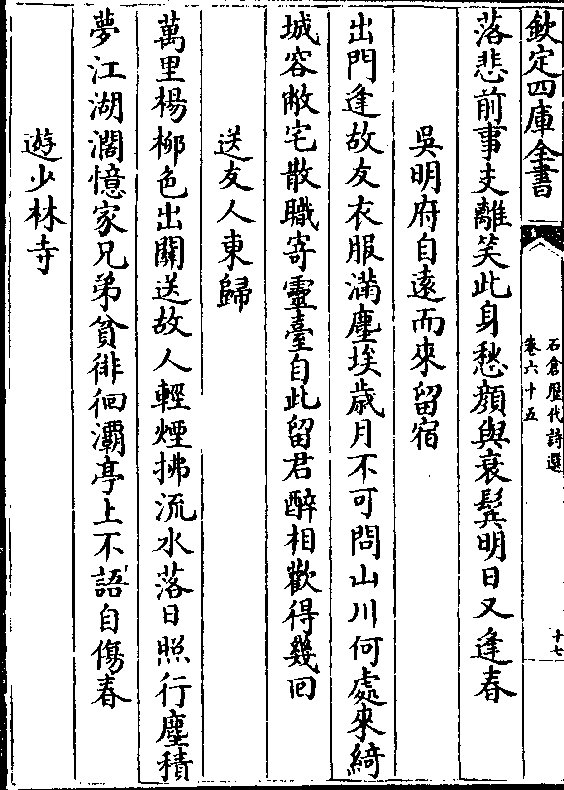 欽定四庫全書
石倉歷代詩選
卷六十五
十七
落悲前事支離笑此身愁顏與衰鬢明日又逢春
吳明府自遠而來留宿
出門逢故友衣服滿塵埃歲月不可問山川何處來綺
城容敝宅散職寄靈臺自此留君醉相歡得幾回
送友人東歸
萬里楊柳色出關送故人輕煙拂流水落日照行塵積
夢江湖濶憶家兄弟貧徘徊灞亭上不語自傷春
遊少林寺